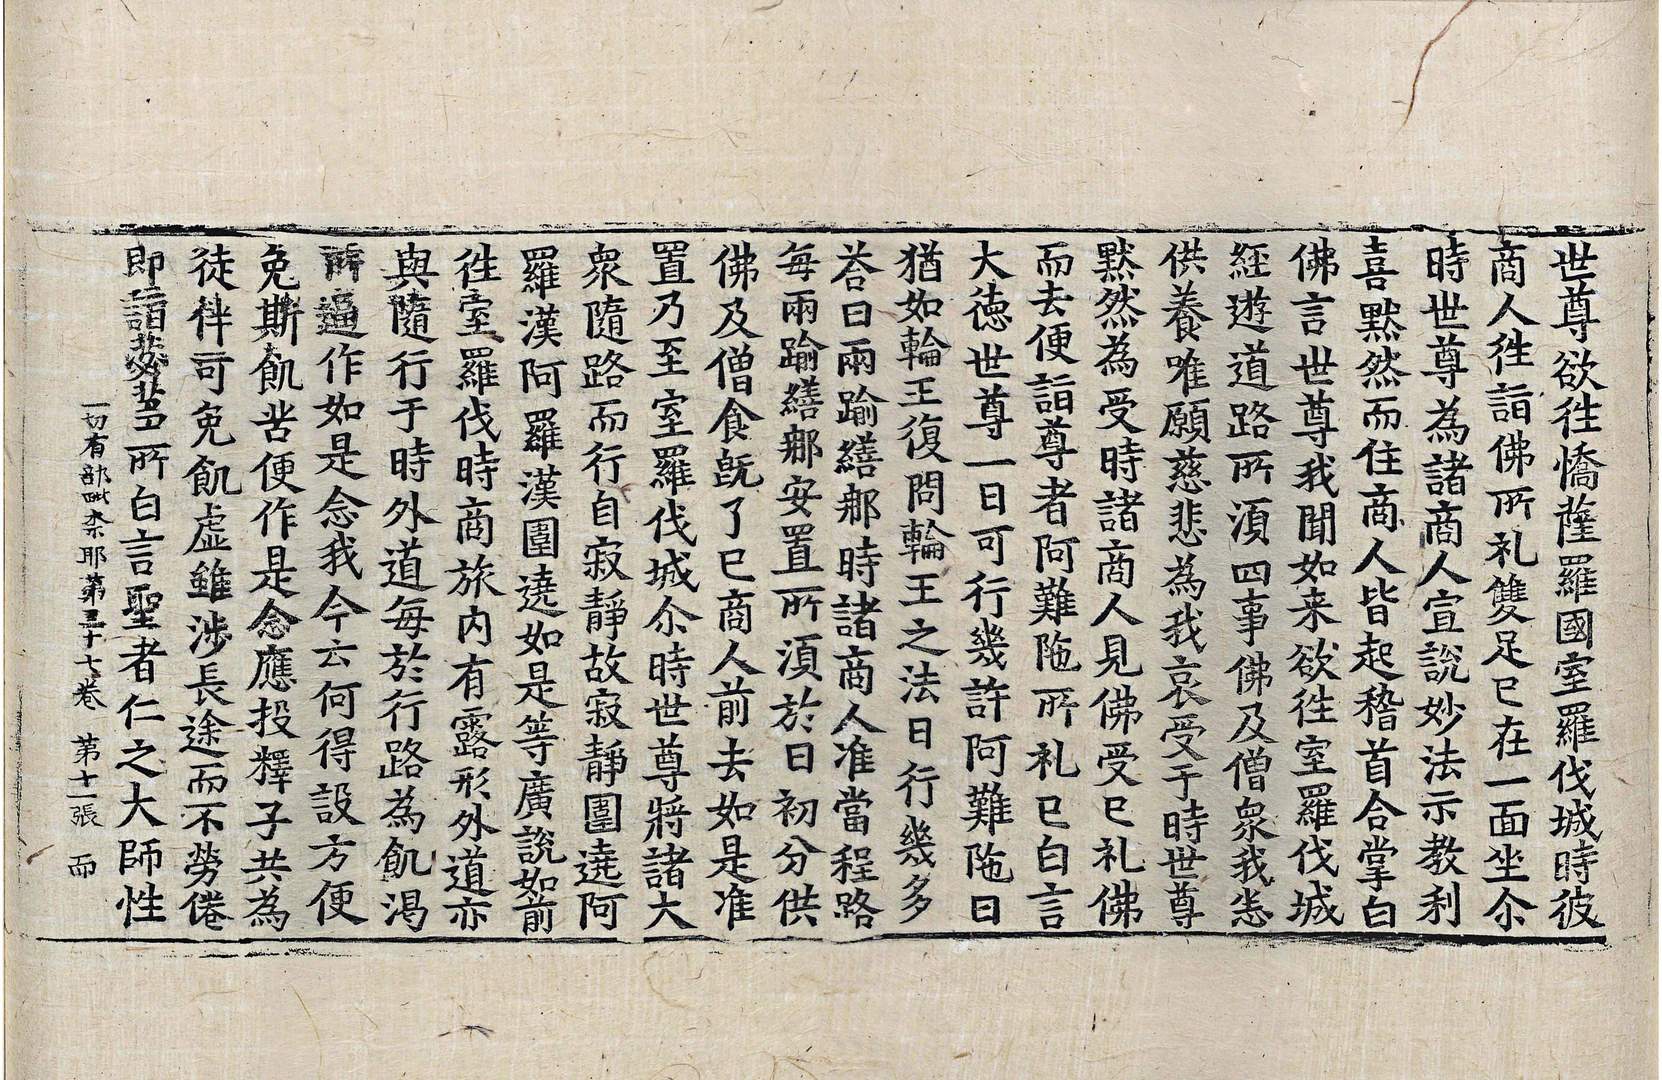 世尊欲徃憍薩羅國室羅伐城時彼
商人徃詣佛所礼雙足已在一面坐尒
時世尊為諸商人宣說妙法示教利
喜默然而住商人皆起稽首合掌白
佛言世尊我聞如来欲徃室羅伐城
經遊道路所湏四事佛及僧衆我悉
供養唯願慈悲為我哀受于時世尊
默然為受時諸商人見佛受已礼佛
而去便詣尊者阿難陁所礼已白言
大德世尊一日可行幾許阿難陁曰
猶如輪王復問輪王之法日行幾多
荅曰兩踰繕那時諸商人准當程路
每兩踰繕那安置所湏於日初分供
佛及僧食既了已商人前去如是准
置乃至室羅伐城尒時世尊將諸大
衆隨路而行自寂靜故寂靜圍遶阿
羅漢阿羅漢圍遶如是等廣說如前
徃室羅伐時商旅內有露形外道亦
與隨行于時外道每於行路為飢渴
所逼作如是念我今云何得設方便
免斯飢苦便作是念應投釋子共為
徒伴可免飢虛雖涉長途而不勞倦
即詣苾芻所白言聖者仁之大師性
一切有部毗柰耶第三十七卷 第十一張 而